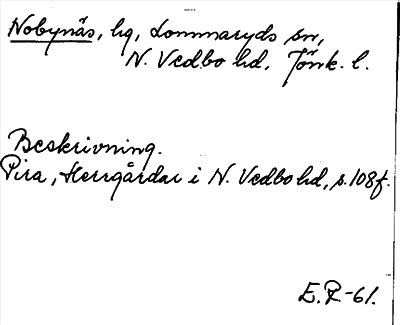 Nobynäs, hg, Lommaryds sn,
N. Vedbo hd, Jönk. l.
Beskrivning.
Pira, Herrgårdar i N. Vedbo hd, s. 108f.
E. P. -61.